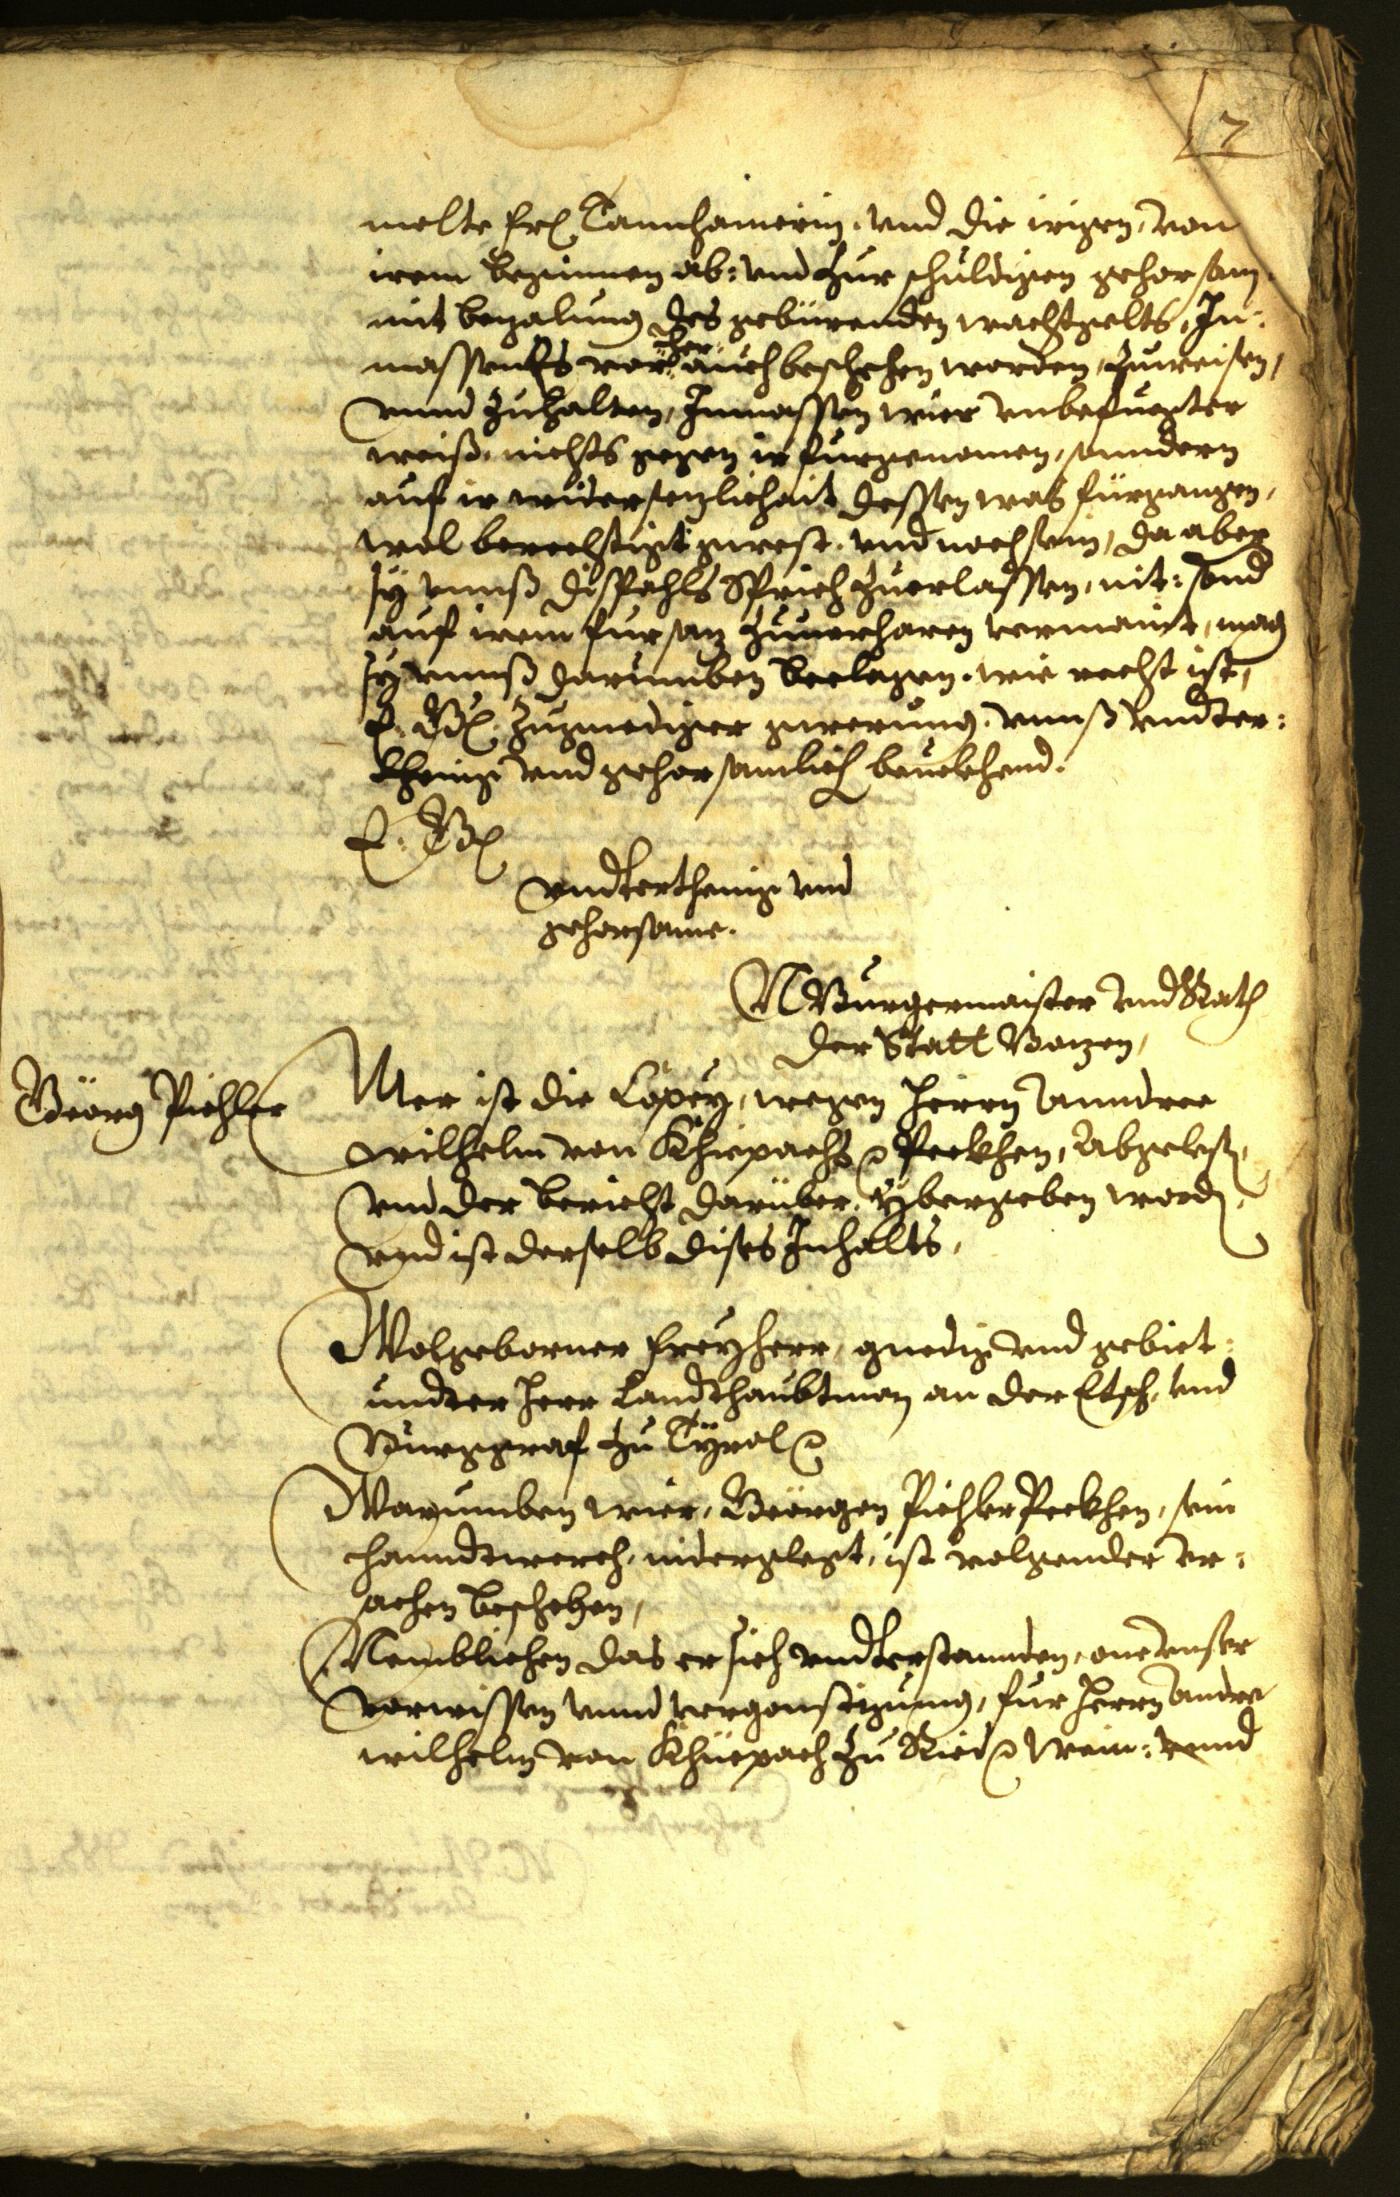 7
melte Fr. Tannhaimerin, vnd die irigen, von
irem beginnen ab: vnd zur schuldigen gehorsam,
mit bezalung des gebürenden wachtgelts, In¬
massen es vor¬
her
auch beschehen worden, zuweisen,
vnnd zuhalten, Inmassen wier vnbefuegter
weiß, nichts gegen ir fürgenomen, sonndern
auf ir widersezlichait dessen was fürgangen,
wol berechtigt gwest, vnd noch sein, da aber
sy vnnß dißfahls Sprich zuerlassen, nit: sond
auf irem fürsaz zuuerharen vermaint, mag
sy vnnß darumben beclagen, wie recht ist,
E. Gn. zu gnediger gwerung, vnnß vndter¬
thenig vnd gehorsamlich beuelchend.
E. Gn
vndterthenig vnd
gehorsame.
N Burgermaister vnd Rath
der Statt Bozen,
Geörg Pichler
Mer ist die Copey, wegen Herrn Anndree
Wilhelm von Khüepachs Peckhen, Abgelesen,
vnd der bericht darüber, ybergeben worden,
vnd ist derselb dises Inhalts,
Wolgeborner Freyherr, gnedig vnd gebiet¬
undter Herr Landtshaubtman an der Etsch, vnd
Burggraf zu Tyrol
Warumben wier, Geörgen Pichler Peckhen, sein
hanndtwerch, nidergelegt, ist volgender vr¬
sachen beschehen,
Nemblichen das er sich vndterstannden, one vnser
vorwissen vnnd vergonstigung, fur Herrn Andre
Wilhelm von Khüepach zu Ried Wein: vnnd